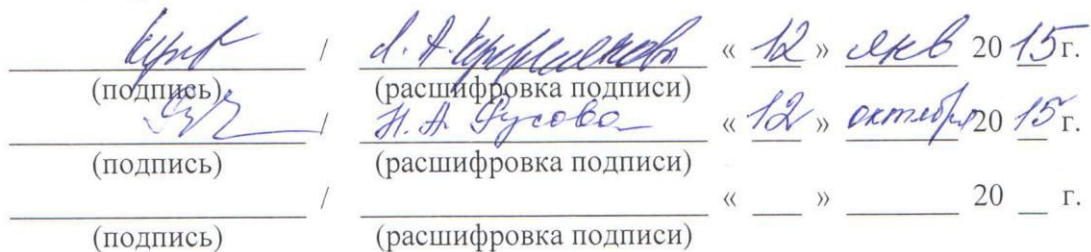 / « 12 » янв 20 15 г.
(подпись) (расшифровка подписи)
/ Н. А. « 12 » октября 20 15 г.
(подпись) (расшифровка подписи)
/ « » 20 г.
(подпись) (расшифровка подписи)